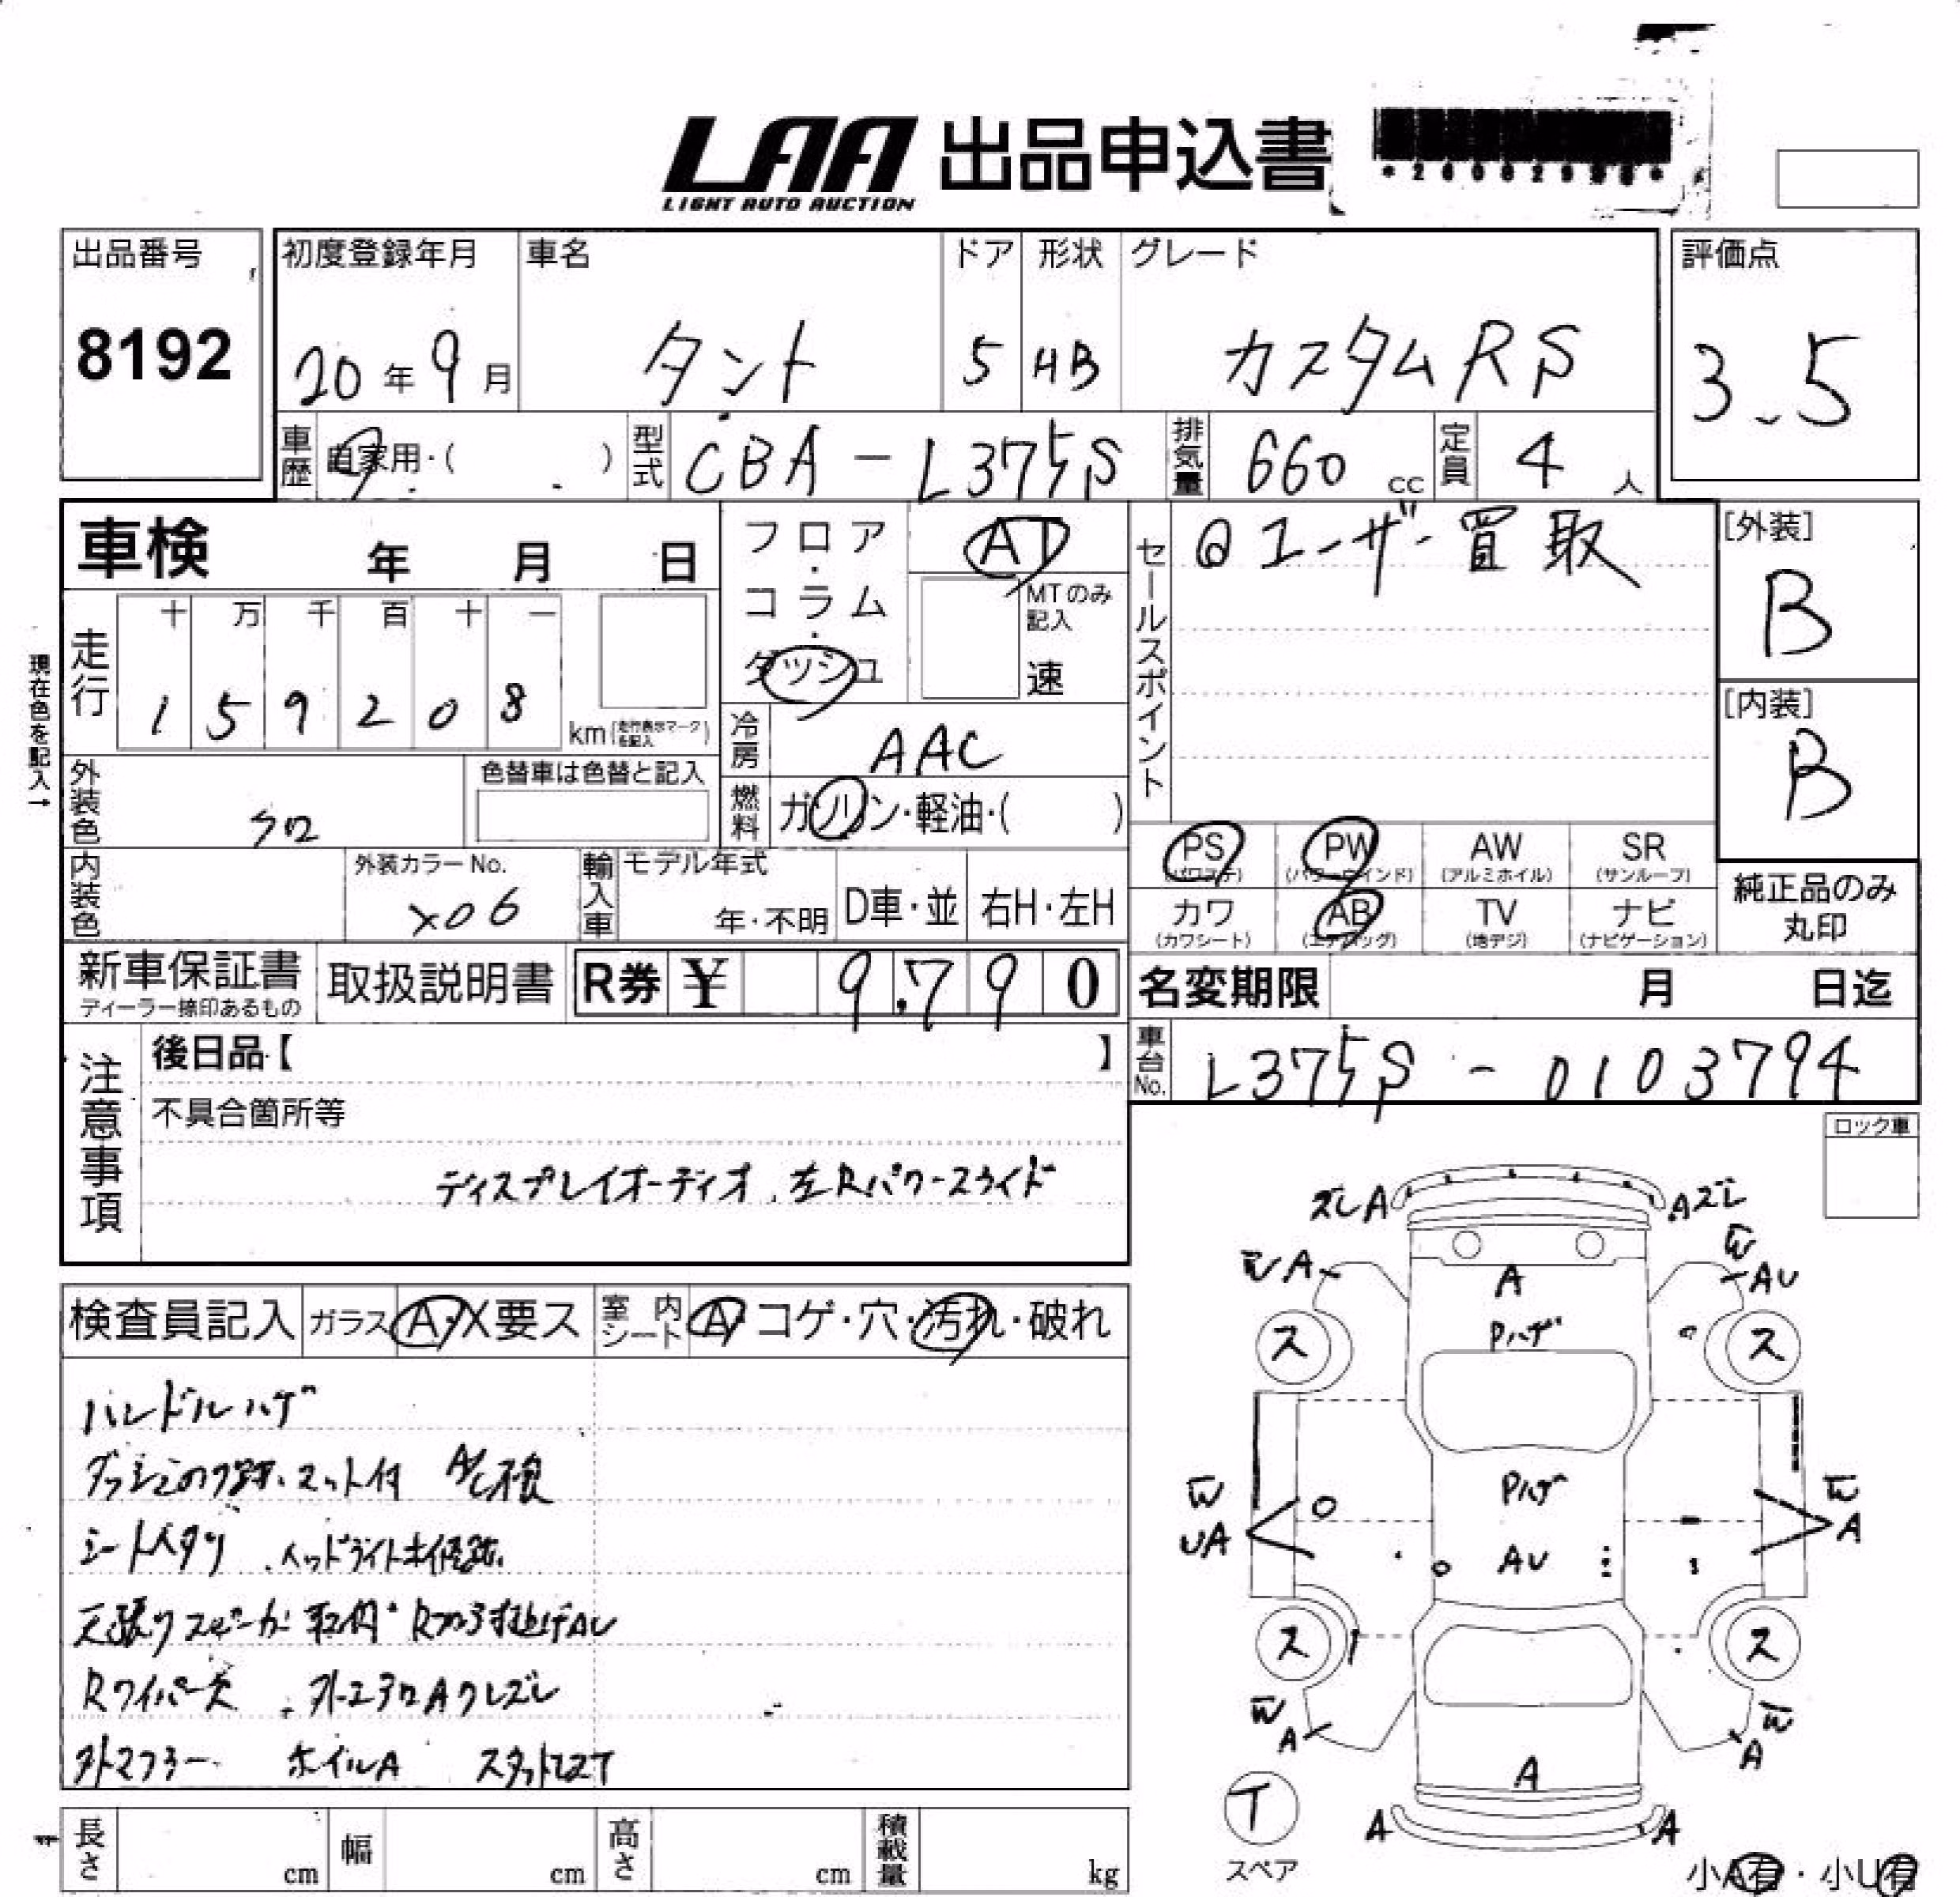 LAA 出品申込書
LIGHT AUTO AUCTION
出品番号
8192
初度登録年月
20年9月
車名
タント
ドア
5
形状
HB
グレード
カスタムRS
評価点
3.5
車歴 自家用・( )
型式 CBA-L375S
排気量 660 cc
定員 4 人
車検 年 月 日
フロア・コラム・ダッシュ
AT
MTのみ記入
速
セールスポイント
◎ユーザー買取
[外装]
B
[内装]
B
現在色を記入→
走行
十 万 千 百 十 一
1 5 9 2 0 8
km(走行表示マークを記入)
冷房 AAC
外装色 クロ
色替車は色替と記入
燃料 ガソリン・軽油・( )
PS (パワステ)
PW (パワーウインド)
AW (アルミホイル)
SR (サンルーフ)
カワ (カワシート)
AB (エアバッグ)
TV (地デジ)
ナビ (ナビゲーション)
純正品のみ丸印
内装色
外装カラーNo.
X06
輸入車
モデル年式
年・不明
D車・並
右H・左H
新車保証書
ディーラー捺印あるもの
取扱説明書
R券 ¥ 9,790
名変期限 月 日迄
注意事項
後日品【 】
車台No. L375S-0103794
不具合箇所等
ディスプレイオーディオ、左Rパワースライド
ロック車
検査員記入
ガラス A・X要ス
室内シート A コゲ・穴・汚れ・破れ
ハンドルハゲ
マット付 A/C検
シートヘタリ
天張りスピーカー取付 AU
Rワイパー欠 外エアロAワレズレ
外マフラー ホイルA
ズレA
Aズレ
W A
W
AU
A
Pハゲ
ス
ス
W
UA
Pハゲ
AU
W
A
ス
ス
W
A
W
A
A
T
スペア
A
A
小A有・小U有
長さ cm
幅 cm
高さ cm
積載量 kg